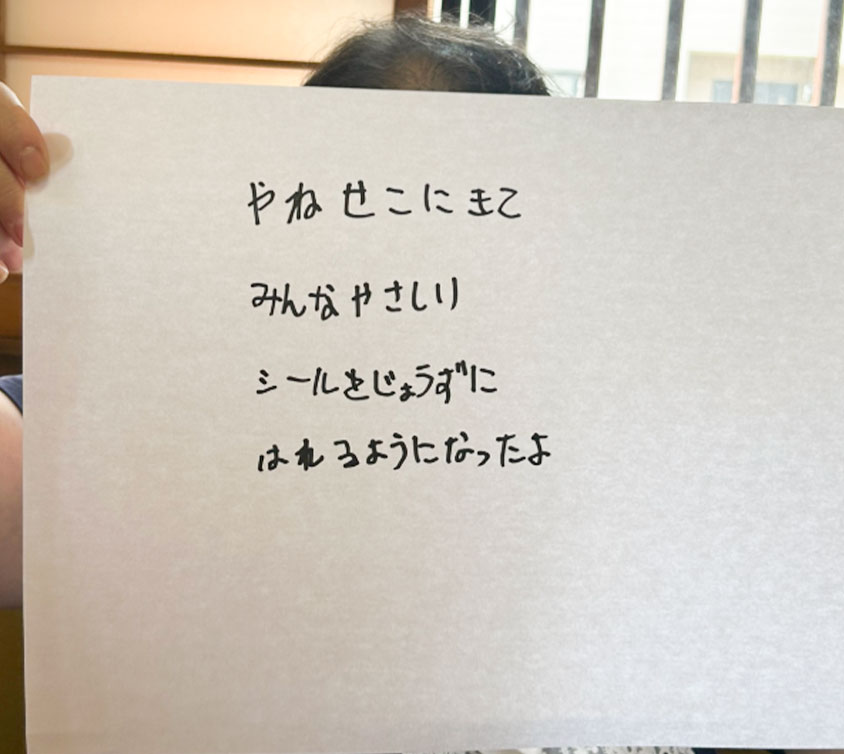 やねせこにきて
みんなやさしい
シールをじょうずに
はれるようになったよ